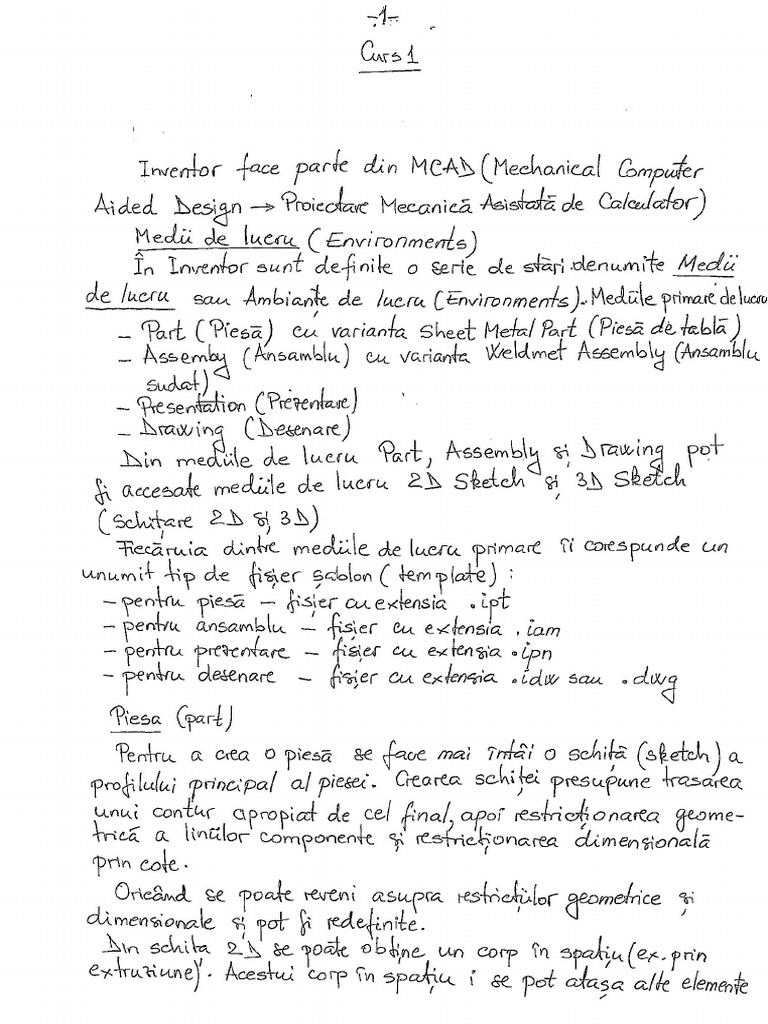 -1-
Curs 1
Inventor face parte din MCAD (Mechanical Computer
Aided Design → Proiectare Mecanică Asistată de Calculator)
Medii de lucru (Environments)
În Inventor sunt definite o serie de stări denumite Medii
de lucru sau Ambianțe de lucru (Environments). Mediile primare de lucru
- Part (Piesă) cu varianta Sheet Metal Part (Piesă de tablă)
- Assemby (Ansamblu) cu varianta Weldmet Assembly (Ansamblu
sudat)
- Presentation (Prezentare)
- Drawing (Desenare)
Din mediile de lucru Part, Assembly și Drawing pot
fi accesate mediile de lucru 2D Sketch și 3D Sketch
(Schițare 2D și 3D)
Fiecăruia dintre mediile de lucru primare îi corespunde un
unumit tip de fișier șablon (template) :
- pentru piesă - fișier cu extensia .ipt
- pentru ansamblu - fișier cu extensia .iam
- pentru prezentare - fișier cu extensia .ipn
- pentru desenare - fișier cu extensia .idw sau .dwg
Piesa (part)
Pentru a crea o piesă se face mai întâi o schiță (sketch) a
profilului principal al piesei. Crearea schiței presupune trasarea
unui contur apropiat de cel final, apoi restricționarea geome-
trică a liniilor componente și restricționarea dimensională
prin cote.
Oricând se poate reveni asupra restricțiilor geometrice și
dimensionale și pot fi redefinite.
Din schita 2D se poate obține un corp în spațiu (ex. prin
extruziune). Acestui corp în spațiu i se pot atașa alte elemente